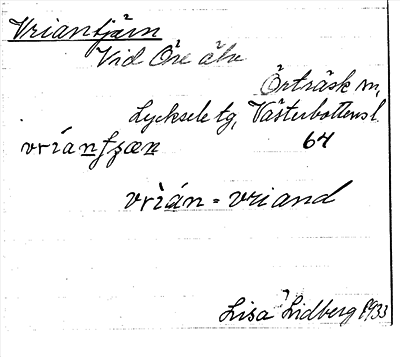 Vriantjärn
Vid Öre älv
Örträsk sn,
Lycksele tg, Västerbottens l.
vriánʃʒæn 64
vrìán = vriand
Lisa Lidberg 1933